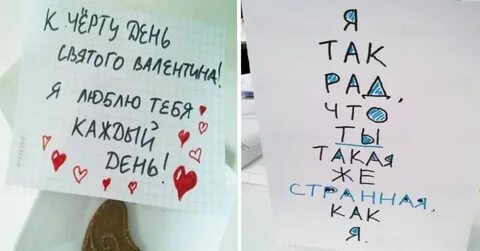 К ЧЁРТУ ДЕНЬ
СВЯТОГО ВАЛЕНТИНА!
Я ЛЮБЛЮ ТЕБЯ
КАЖДЫЙ
ДЕНЬ!
Я
ТАК
РАД,
ЧТО
ТЫ
ТАКАЯ
ЖЕ
СТРАННАЯ,
КАК
Я.